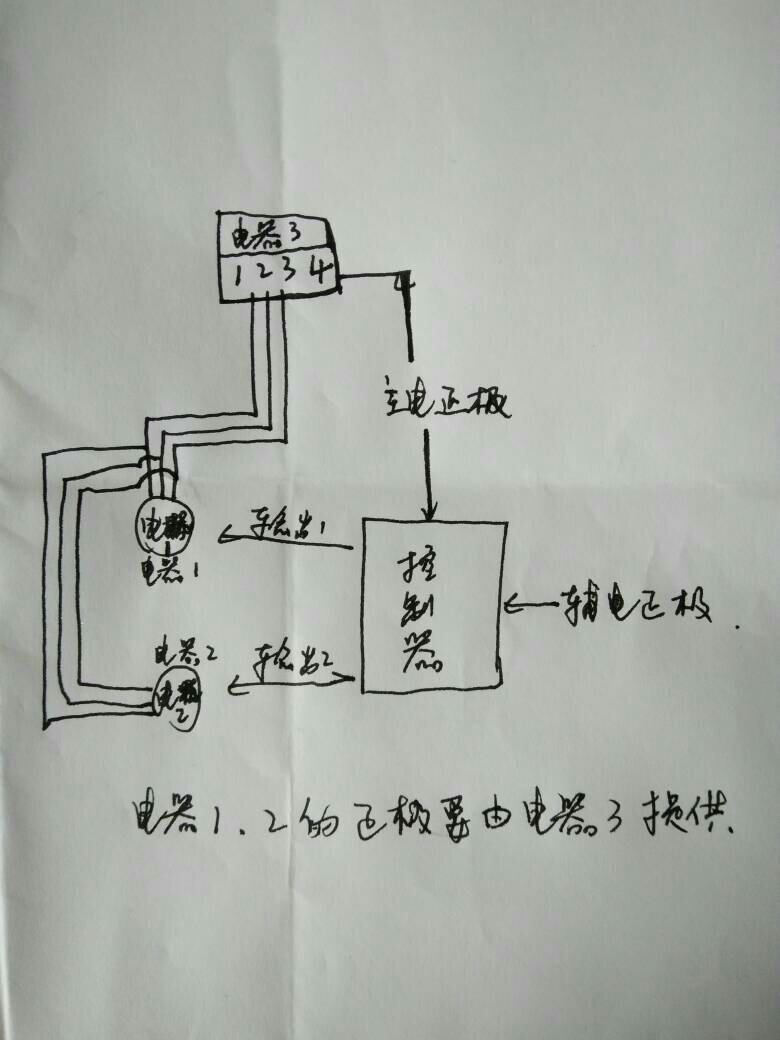 电器3
1 2 3 4
主电正极
电器1
输出1
控制器
辅电正极.
电器2
输出2
电器2
电器1.2的正极要由电器3提供.